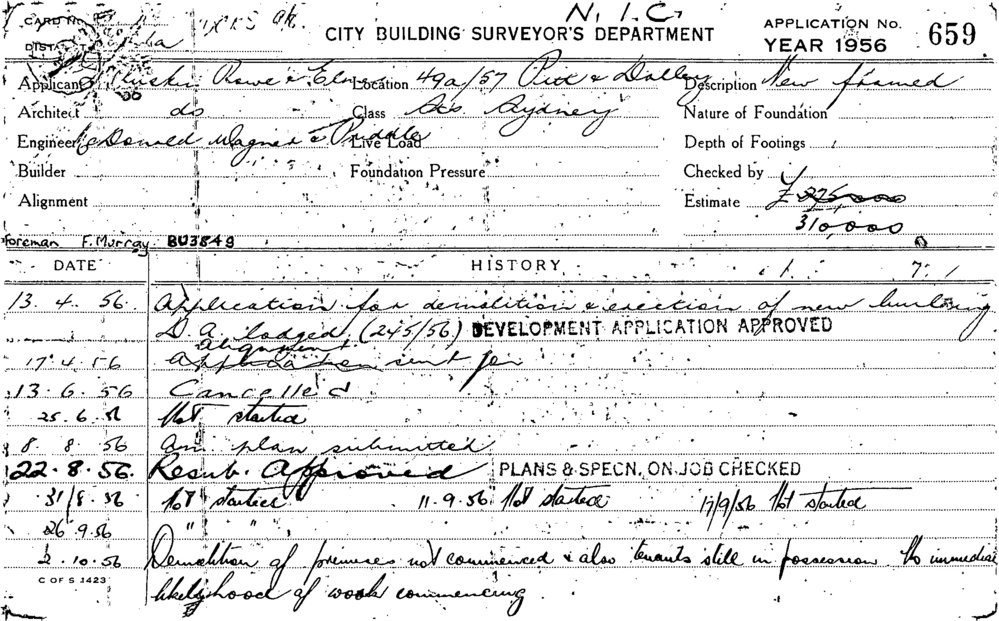 N. I. C.
CARD No.
CITY BUILDING SURVEYOR'S DEPARTMENT
APPLICATION No. 659
YEAR 1956
Applicant Rowe & Location 49a/57 Pitt & Dalley Description New framed
Architect do Class Sts. Sydney Nature of Foundation
Engineer McDonald Wagner & Priddle Live Load Depth of Footings
Builder Foundation Pressure Checked by
Alignment Estimate £ 275,000
310,000
foreman F. Murray BU3849
DATE HISTORY
13. 4. 56. Application for demolition & erection of new building
D. A. lodged (245/56) DEVELOPMENT APPLICATION APPROVED
alignment
17. 4. 56 Application sent for
13. 6. 56 Cancelled
25. 6. 56 Not started
8. 8. 56 Am. plan submitted
22. 8. 56. Resub. Approved PLANS & SPECN. ON JOB CHECKED
31/8. 56 Not started 11. 9. 56 Not started 17/9/56 Not started
26. 9. 56 " "
2. 10. 56 Demolition of premises not commenced & also tenants still in possession No immediate
likelyhood of work commencing
C OF S 1423